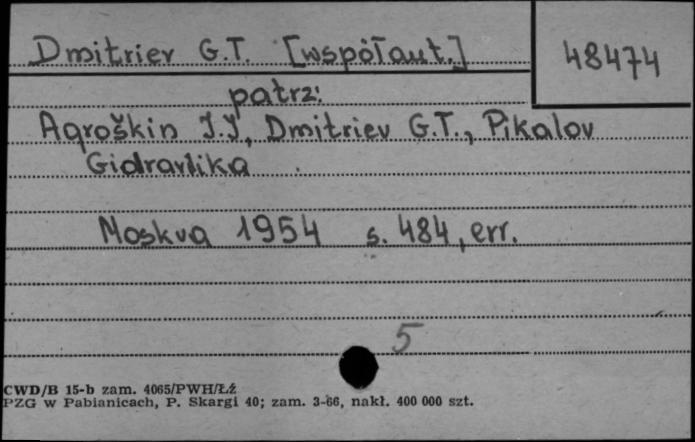 Dmitriev G.T. [współaut.]
48474
patrz:
Agroškin I.I, Dmitriev G.T., Pikalov
Gidravlika
Moskva 1954 s. 484, err.
5
CWD/B 15-b zam. 4065/PWH/ŁŹ
PZG w Pabianicach, P. Skargi 40; zam. 3-66, nakł. 400 000 szt.